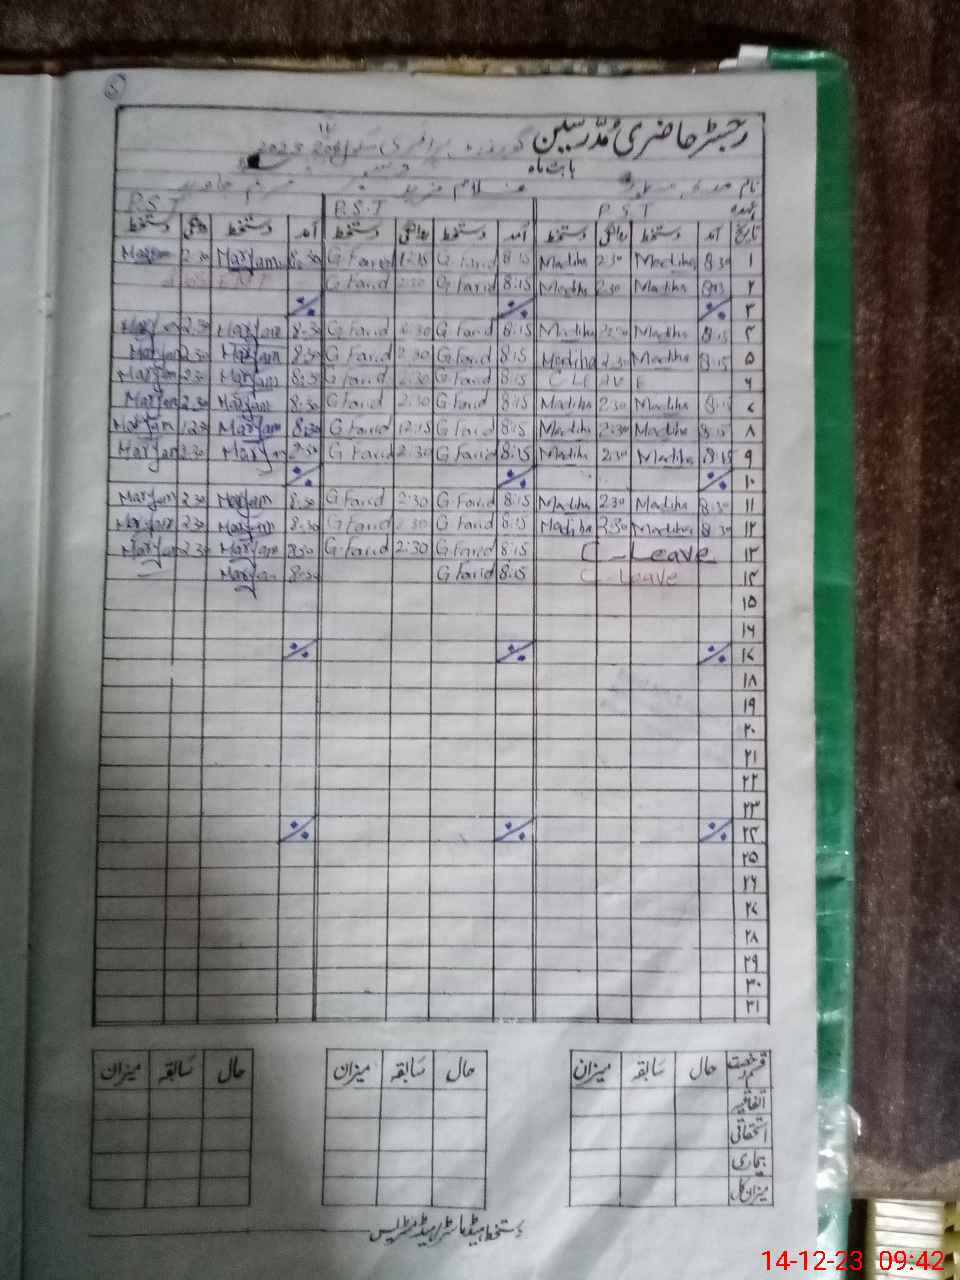 رجسٹر حاضری مُدرّسین گورنمنٹ پرائمری سکول
بابت ماہ دسمبر 2023
نام غلام فرید مریم
عہدہ P.S.T P.S.T P.S.T
تاریخ آمد دستخط روانگی دستخط آمد دستخط روانگی دستخط آمد دستخط روانگی دستخط
۱ 8:30 Madiha 2:30 Madiha 8:15 G Farid 12:15 G Farid 8:30 Maryam 2:30 Maryam
۲ 8:15 Madiha 2:30 Madiha 8:15 G Farid 2:30 G Farid
۳ ٪ ٪ ٪
۴ 8:15 Madiha 2:30 Madiha 8:15 G Farid 2:30 G Farid 8:30 Maryam 2:30 Maryam
۵ 8:15 Madiha 2:30 Madiha 8:15 G Farid 2:30 G Farid 8:30 Maryam 2:30 Maryam
۶ C LEAVE 8:15 G Farid 2:30 G Farid 8:30 Maryam 2:30 Maryam
۷ 8:15 Madiha 2:30 Madiha 8:15 G Farid 2:30 G Farid 8:30 Maryam 2:30 Maryam
۸ 8:15 Madiha 2:30 Madiha 8:15 G Farid 12:15 G Farid 8:30 Maryam 12:30 Maryam
۹ 8:15 Madiha 2:30 Madiha 8:15 G Farid 2:30 G Farid 8:30 Maryam 2:30 Maryam
۱۰ ٪ ٪ ٪
۱۱ 8:30 Madiha 2:30 Madiha 8:15 G Farid 2:30 G Farid 8:30 Maryam 2:30 Maryam
۱۲ 8:30 Madiha 2:30 Madiha 8:15 G Farid 2:30 G Farid 8:30 Maryam 2:30 Maryam
۱۳ C-Leave 8:15 G Farid 2:30 G Farid 8:30 Maryam 2:30 Maryam
۱۴ C-Leave 8:15 G Farid 8:30 Maryam
۱۵
۱۶
۱۷ ٪ ٪ ٪
۱۸
۱۹
۲۰
۲۱
۲۲
۲۳
۲۴ ٪ ٪ ٪
۲۵
۲۶
۲۷
۲۸
۲۹
۳۰
۳۱
قسم رخصت حال سابقہ میزان حال سابقہ میزان حال سابقہ میزان
اتفاقیہ
استحقاقی
بیماری
میزان کل
دستخط ہیڈ ماسٹر/ہیڈ مسٹریس
14-12-23 09:42